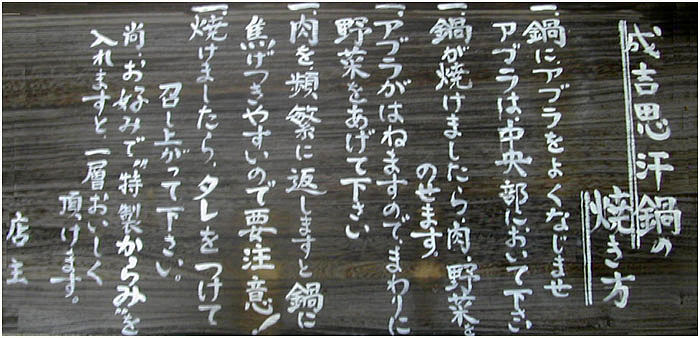 成吉思汗鍋の
焼き方
一、鍋にアブラをよくなじませ
アブラは、中央部において下さい
一、鍋が焼けましたら、肉、野菜を
のせます。
一、アブラがはねますので、まわりに
野菜をあげて下さい
一、肉を頻繁に返しますと鍋に
焦げつきやすいので要注意!
一、焼けましたら、タレをつけて
召し上がって下さい。
尚、お好みで“特製からみ”を
入れますと、一層おいしく
頂けます。
店主